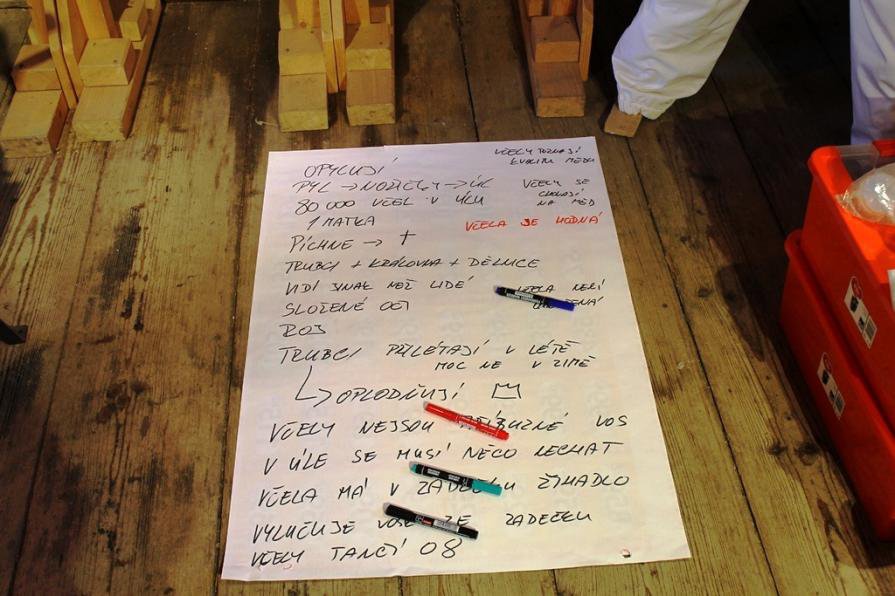 OPYLUJÍ
PYL → NOŽIČKY → ÚL
80 000 VČEL V ÚLU
1 MATKA
PÍCHNE → †
TRUBCI + KRÁLOVNA + DĚLNICE
VIDÍ JINAK NEŽ LIDÉ
SLOŽENÉ OČI
ROJ
TRUBCI PŘILÉTAJÍ V LÉTĚ
MOC NE V ZIMĚ
OPLODŇUJÍ
VČELY NEJSOU PŘÍBUZNÉ VOS
V ÚLE SE MUSÍ NĚCO NECHAT
VČELA MÁ V ZADEČKU ŽIHADLO
VYLUČUJE VOSK ZE ZADEČKU
VČELY TANČÍ 08
VČELY POZNAJÍ
KVALITU MEDU
VČELY SE
CHOVAJÍ
NA MED
VČELA JE HODNÁ
VČELA NENÍ